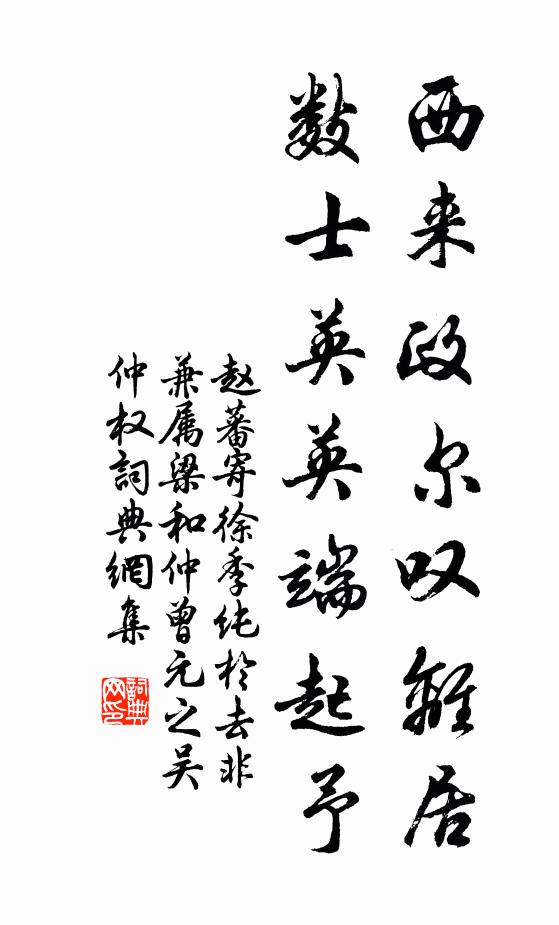 西来政尔叹離居
数士英英端起予
赵蕃寄徐季纯於去非
兼属梁和仲曾元之吴
仲权詞典網集
詞典网印